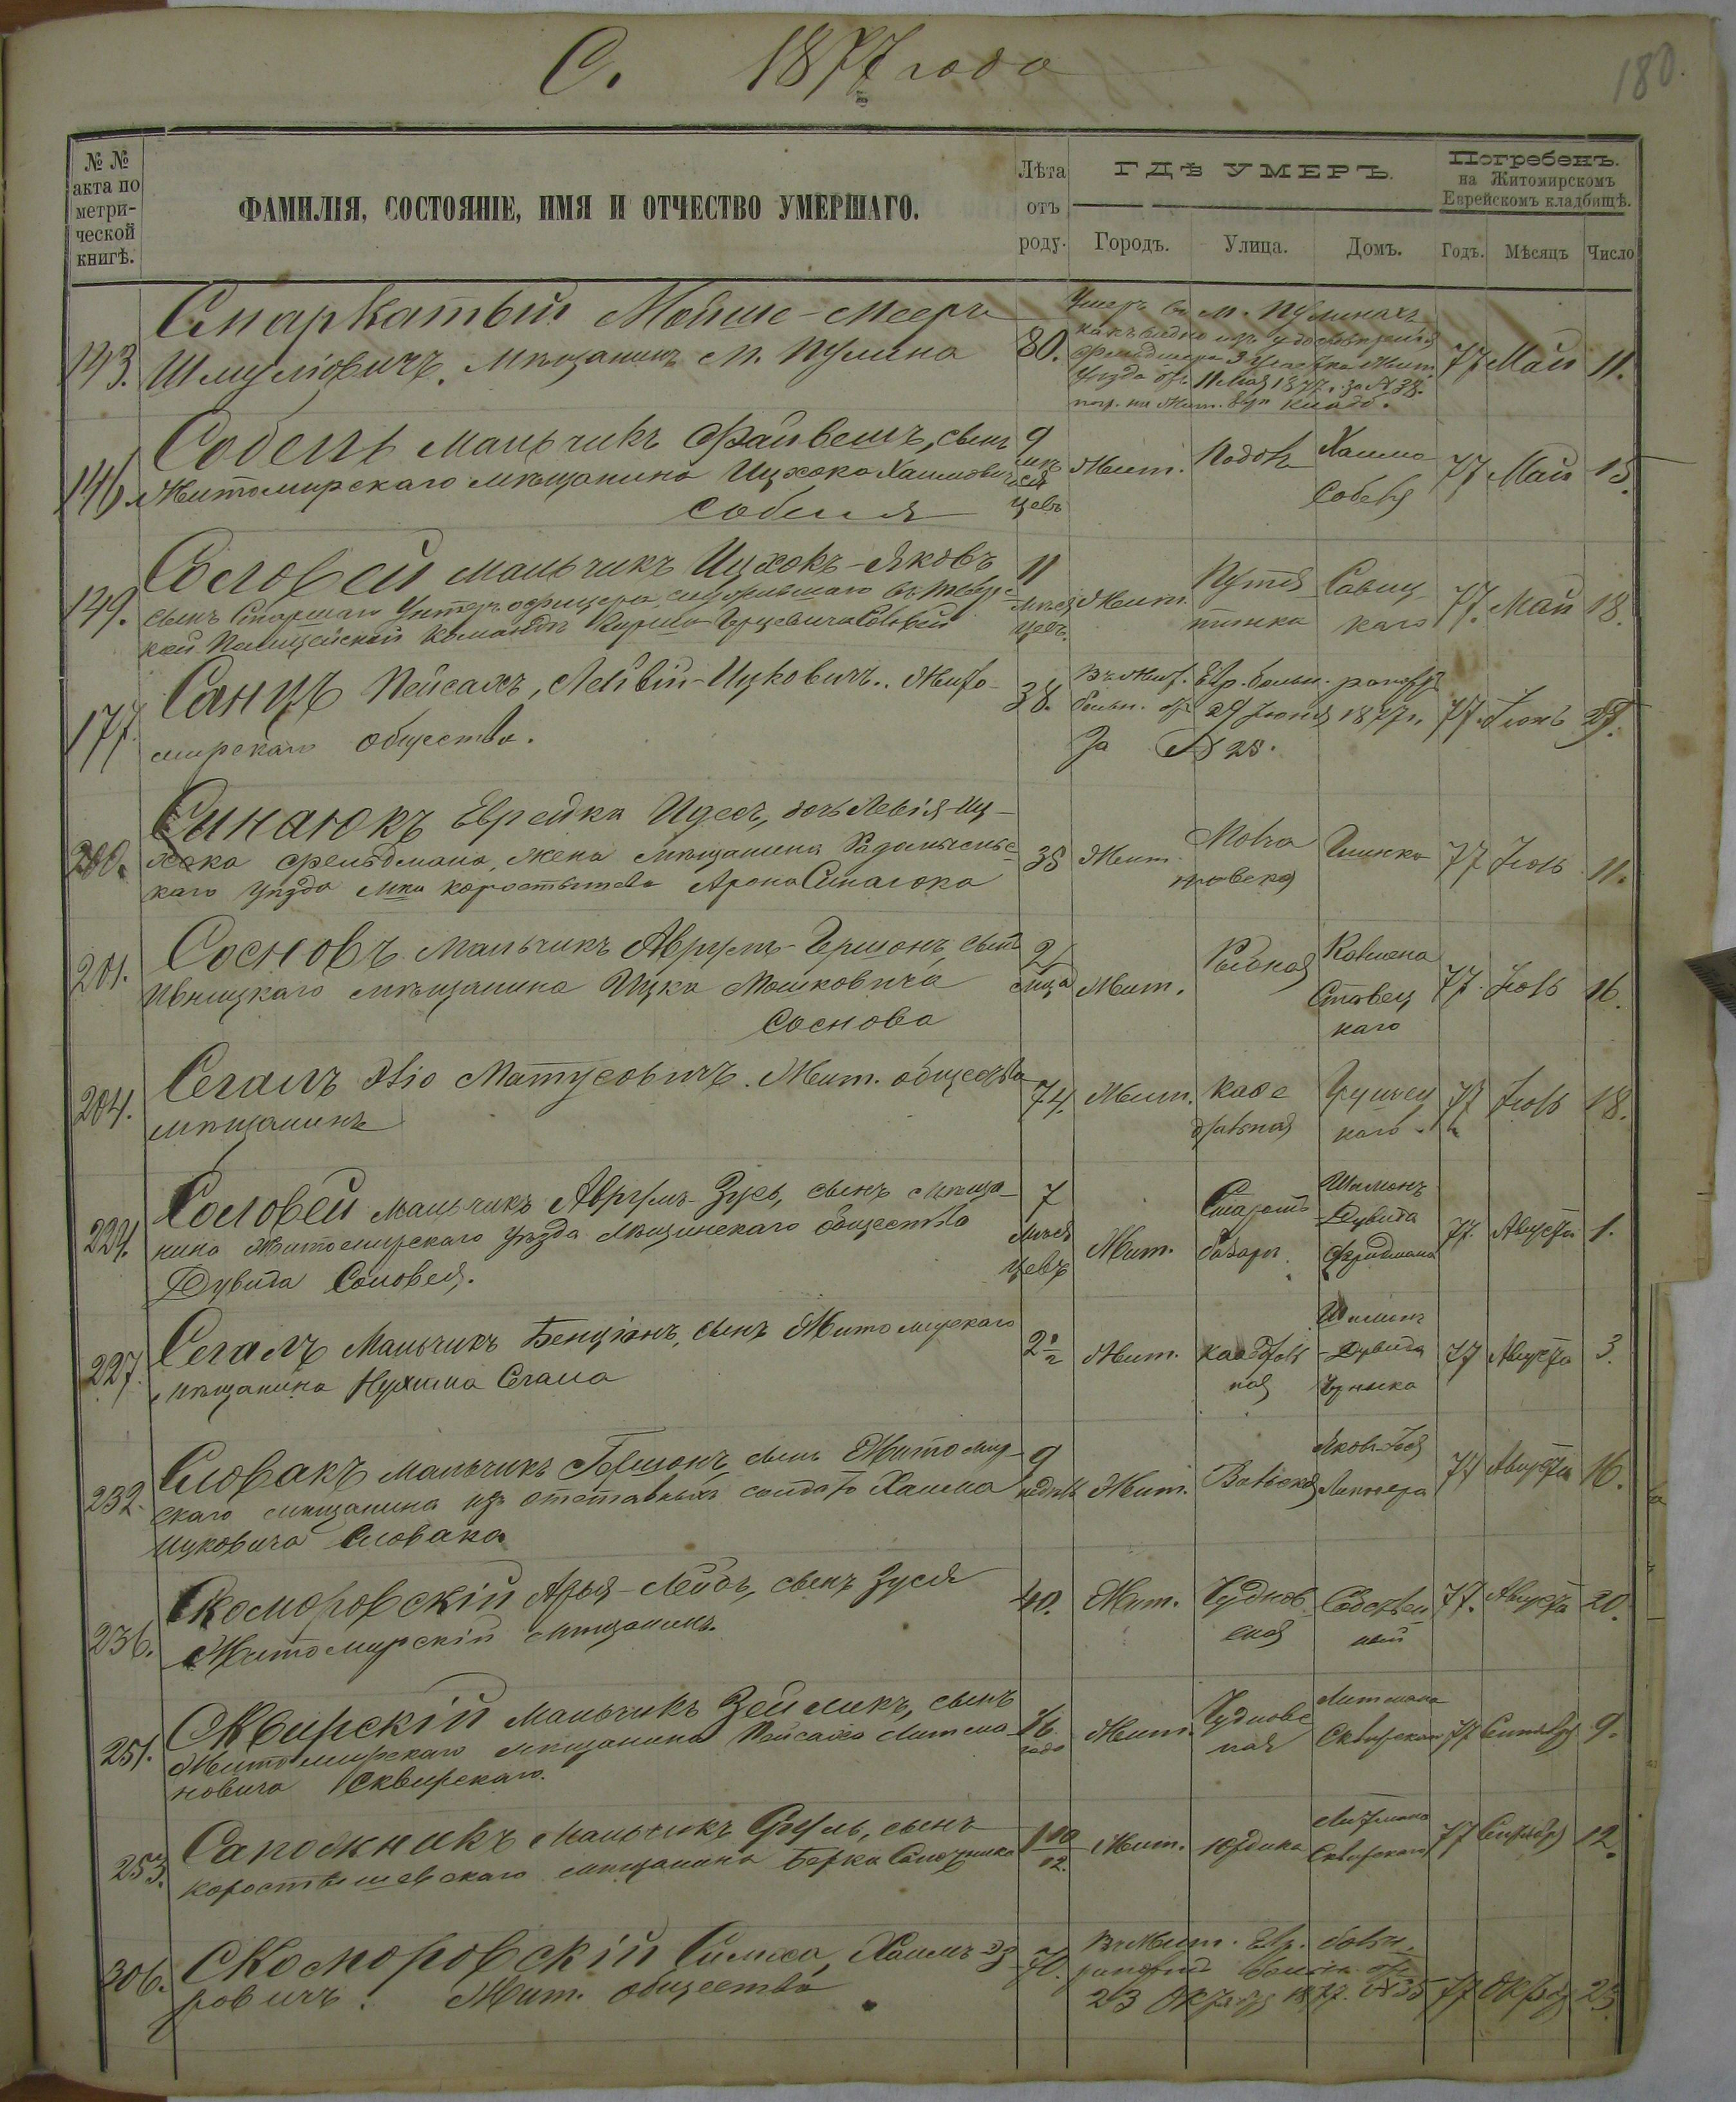 С. 1877 года
180.
№ №
акта по
метри-
ческой
книгѣ.
ФАМИЛІЯ, СОСТОЯНІЕ, ИМЯ И ОТЧЕСТВО УМЕРШАГО.
Лѣта
отъ
роду.
ГДѢ УМЕРЪ.
Городъ. Улица. Домъ.
Погребенъ.
на Житомирскомъ
Еврейскомъ кладбищѣ.
Годъ. Мѣсяцъ Число
143. Смаркатый Мойше-Мееръ
Шмуліовичъ. Мѣщанинъ м. Пулина
80.
Умеръ въ м. Пулинахъ
какъ видно изъ удостовѣренія
фельдшера 3 участка Жит.
уѣзда отъ 11 Мая 1877 г. за № 38.
погр. на Жит. Евр кладб.
77 Май 11.
146. Собель мальчикъ Файвешъ, сынъ
Житомирскаго мѣщанина Ицхока Хаимовича
Собеля
9 мѣсяцевъ Жит. Подолъ Хаима Собеля 77 Май 15.
149. Соловей мальчикъ Ицхокъ-Яковъ
сынъ Старшаго Унтеръ офицера
кой Полицейской Команды Герцевича Соловей
11 мѣсяцевъ. Жит. Путятинка Савицкаго 77. Май 18.
177. Санцъ Пейсахъ, Лейвій-Ицковичъ. Жито-
мирскаго общества.
38.
Въ Жит. Евр. больн. рапортъ
больн. отъ 29 Іюня 1877 г.
За № 25.
77. Іюнь 29.
200. Синаюкъ Еврейка Идесъ, дочь Левія-Иц-
хока Фельдмана, жена мѣщанина Радомысльс-
каго уѣзда м-ка Коростышева Арона Синаюка
35 Жит. Глинка 77 Іюль 11.
201. Сосновъ мальчикъ Аврумъ-Гершонъ, сынъ
Ивницкаго мѣщанина Ицка Мошковича
Соснова
2 м-ца Жит. Рыбная Ставецкаго 77. Іюль 16.
204. Сегалъ Матусовичъ. Жит. общества
мѣщанинъ
74. Жит. Кафедральная 77 Іюль 18.
224. Соловей мальчикъ Аврумъ-Зусь, сынъ мѣща-
нина Житомирскаго уѣзда общества
Дувида Соловея.
7 мѣсяцевъ Жит. базаръ Шлиомъ-Дувида Фридмана 77. Августа 1.
227. Сегалъ Мальчикъ Бенціонъ, сынъ Житомирскаго
мѣщанина Нухима Сегала
2 Жит. Кафедральная Дувида 77 Августа 3.
232. Словакъ мальчикъ Гершонъ сынъ Житомир-
скаго мѣщанина изъ отставныхъ солдатъ Хаима
Ицковича Словака
9 недѣль Жит. Вильская 77 Августа 16.
236. Скоморовскій Арья-Лейбъ, сынъ Зуся
Житомирскій мѣщанинъ.
40. Жит. Чудновская Собственный 77. Августа 20.
251. Сквирскій мальчикъ Зейликъ, сынъ
Житомирскаго мѣщанина Пейсаха Литма-
новича Сквирскаго.
Жит. Чудновская Литмана Сквирскаго 77 Сентября 9.
253. Сапожникъ Мальчикъ Сруль, сынъ
Коростышевскаго мѣщанина Берка Сапожника
1 10/12. Жит. Юрдика Литмана Сквирскаго 77 Сентября 12.
306. Скоморовскій Симха, Хаимъ-Эз-
ровичъ. Жит. общества
70.
Въ Жит. Евр. больн.
рапортъ больн. отъ
23 Октября 1877. № 35
77 Октября 23.